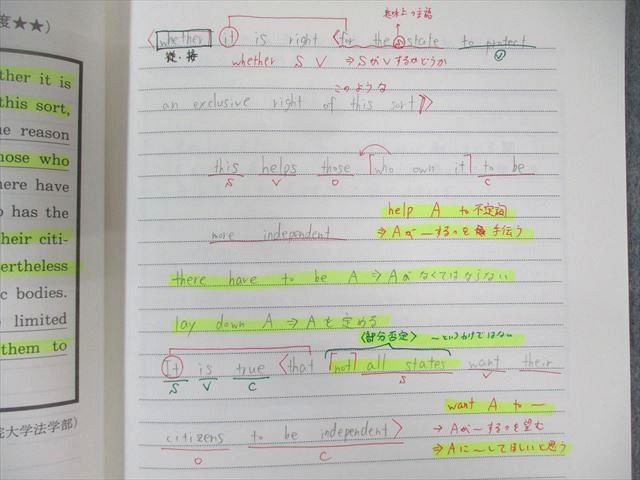 度★★)
ther it is
this sort,
ne reason
nose who
here have
o has the
heir citi-
ertheless
c bodies.
limited
them to
完大学法学部)
意味上の主語
〈whether it is right 〈for the state to protect
S
V
従・接
whether S V ⇒ SがVするかどうか
このような
an exclusive right of this sort〉〉
this helps those [who own it] to be
S V O C
help A to不定詞
more independent
⇒ Aが〜するのを手伝う
there have to be A ⇒ Aがなくてはならない
lay down A ⇒ Aを定める
〈部分否定〉 〜というわけではない
It is true 〈that [not] all states want their
S V C S V
want A to 〜
citizens to be independent〉
→ Aが〜するのを望む
O C
⇒ Aに〜してほしいと思う